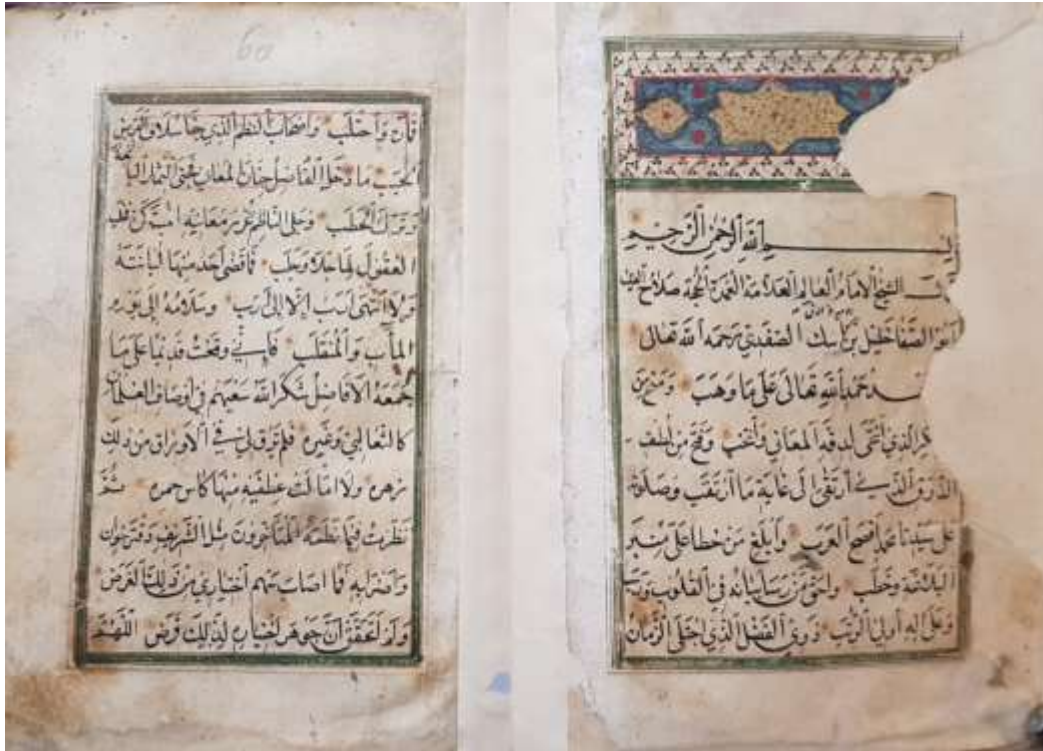 بسم الله الرحمن الرحيم
الشيخ الامام العالم العلامة العمدة الحجة صلاح
ابو الصفا خليل بن ايبك الصفدي رحمه الله تعالى
حمد الله تعالى على ما وهب ومنح من
الذي انتمى لدقه المعاني وانتخب وفتح من
الذوق الذي ارتقى الى غاية ما ارتقب وصلاته
على سيدنا محمد افصح العرب وأبلغ من خطا على منبر
البلاغة وخطب بيانه في القلوب
وعلى اله أولي الرتب ذوي الفضل الذي اجتلى الزمان
60
واجتلب واصحاب النظم الذي
ما دخل الفاضل جنان المعاني فجنى الثمار
وترك الحطب وجلى الناظم غرر معانيه
العقول لها جلا وجلب فما قضى أحد منها لبانته
ولا انتهى أرب إلا إلى أرب وسلامه إلى يوم
المآب والمنقلب فإنني وقفت قديما على ما
جمعه الافاضل شكر الله سعيهم في اوصاف
كالثعالبي وغيره فلم يرق لي في الاوراق من ذلك
زهره ولا امالت عطفيه منها كاس خمره ثم
نظرت فيما نظمه المتأخرون مثل الشريف دفترخوان
واضرابه فما اصاب سهم اختياري من ذلك الغرض
ولم لتحقق أن جوهر لذلك عرض اللهم